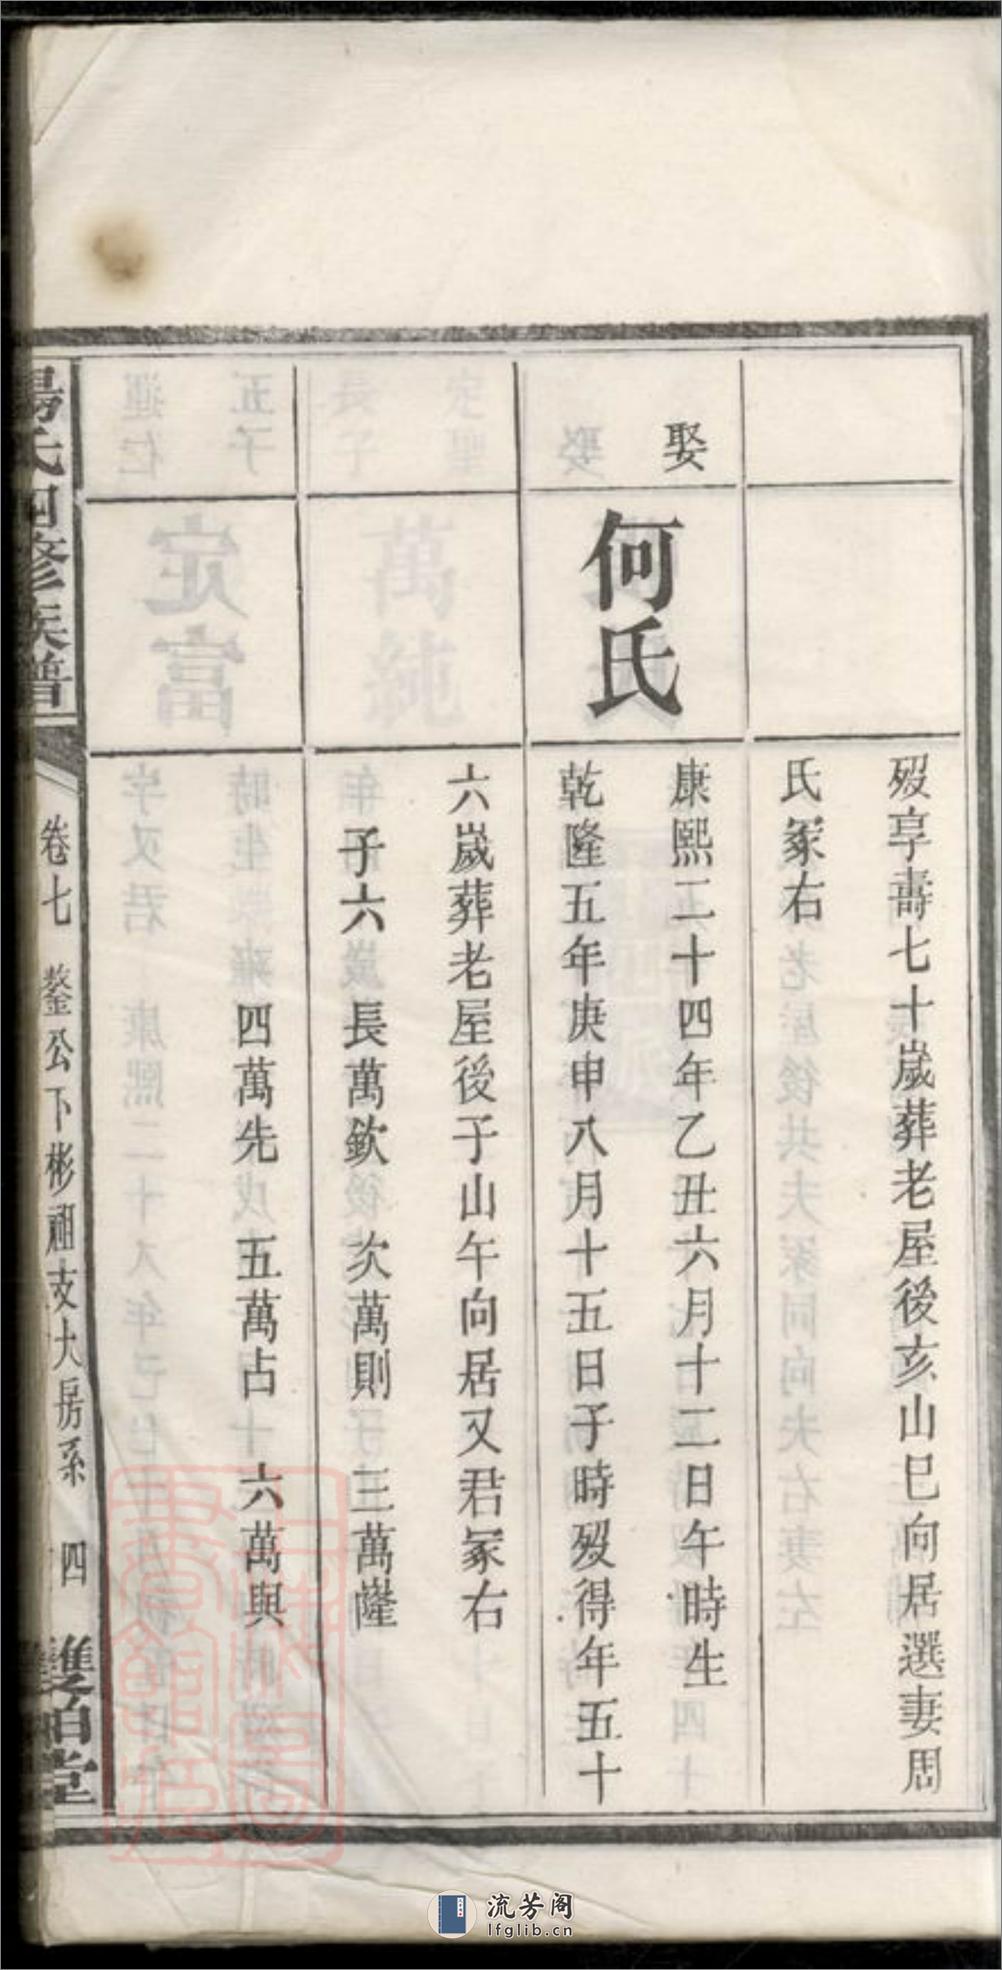 歿享壽七十歲葬老屋後亥山巳向居選妻周
氏冢右
娶
何氏
康熙二十四年乙丑六月十二日午時生
乾隆五年庚申八月十五日子時歿得年五十
六歲葬老屋後子山午向居又君冢右
子六 長萬欽 次萬則 三萬嶐
四萬先 五萬占 六萬與
氏四修族譜
卷七 鍫公下彬祖支大房系 四 雙柏堂
流芳阁
lfglib.cn